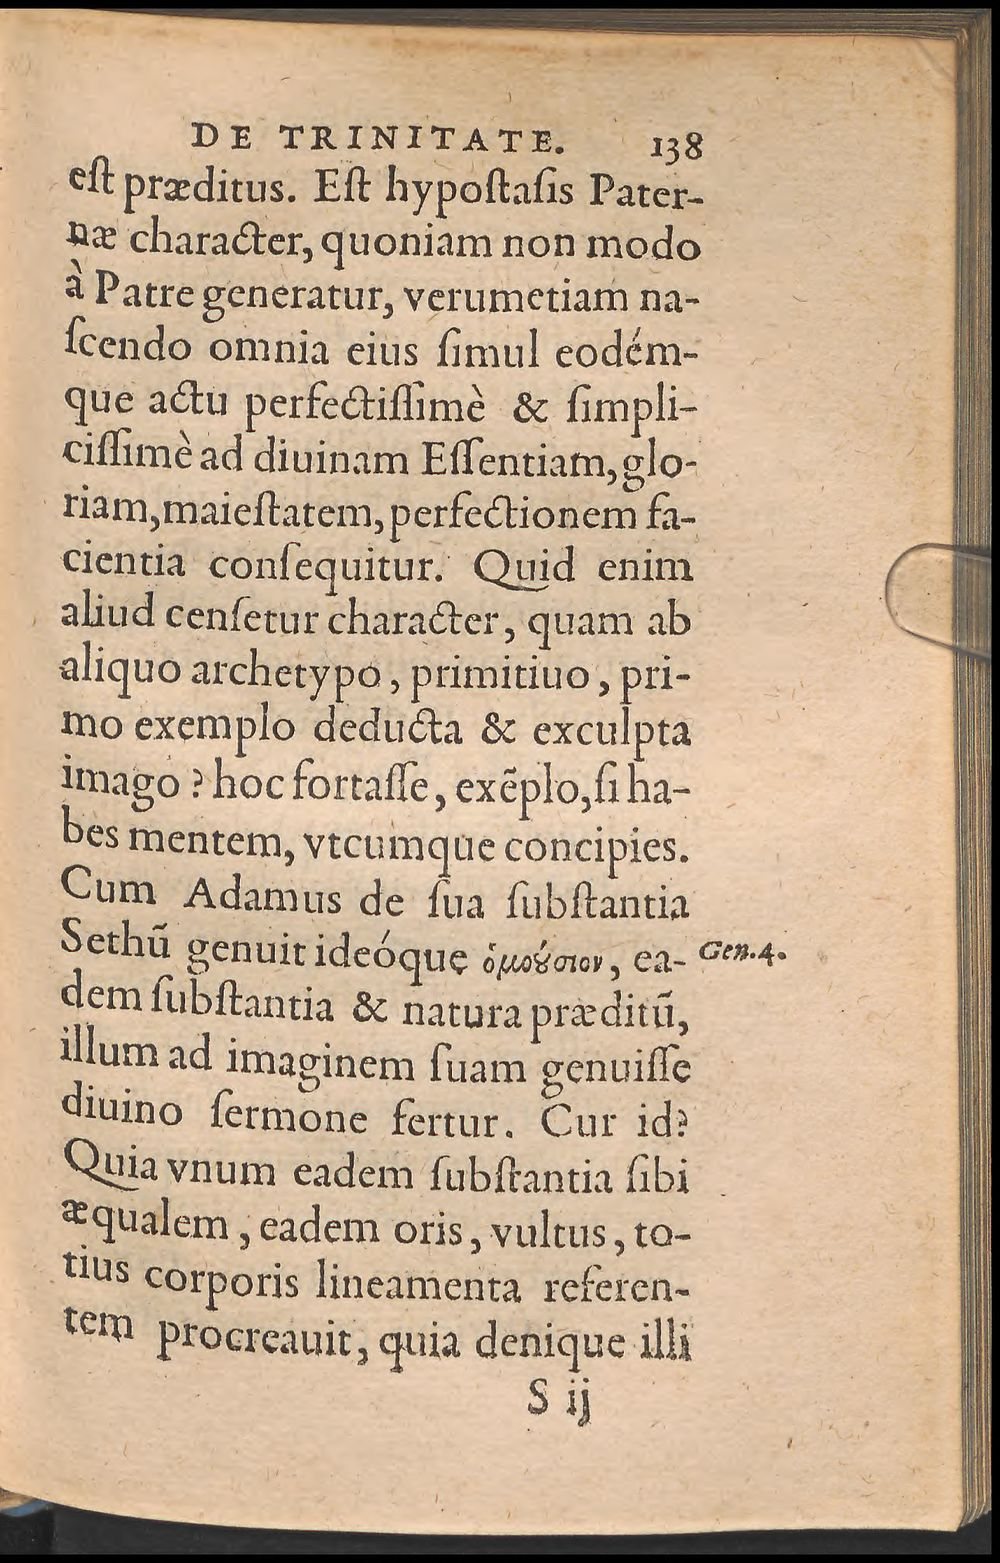 DE TRINITATE. 138
eſt præditus. Eſt hypoſtaſis Pater-
næ character, quoniam non modo
à Patre generatur, verumetiam na-
ſcendo omnia eius ſimul eodém-
que actu perfectiſſimè & ſimpli-
ciſſimè ad diuinam Eſſentiam, glo-
riam, maieſtatem, perfectionem fa-
cientia conſequitur. Quid enim
aliud cenſetur character, quam ab
aliquo archetypo, primitiuo, pri-
mo exemplo deducta & exculpta
imago ? hoc fortaſſe, exẽplo, ſi ha-
bes mentem, vtcumque concipies.
Cum Adamus de ſua ſubſtantia
Sethũ genuit ideóque ὁμοȣ́σιον, ea- Gen. 4.
dem ſubſtantia & natura præditũ,
illum ad imaginem ſuam genuiſſe
diuino ſermone fertur. Cur id?
Quia vnum eadem ſubſtantia ſibi
æqualem, eadem oris, vultus, to-
tius corporis lineamenta referen-
tem procreauit, quia denique illi
S ij